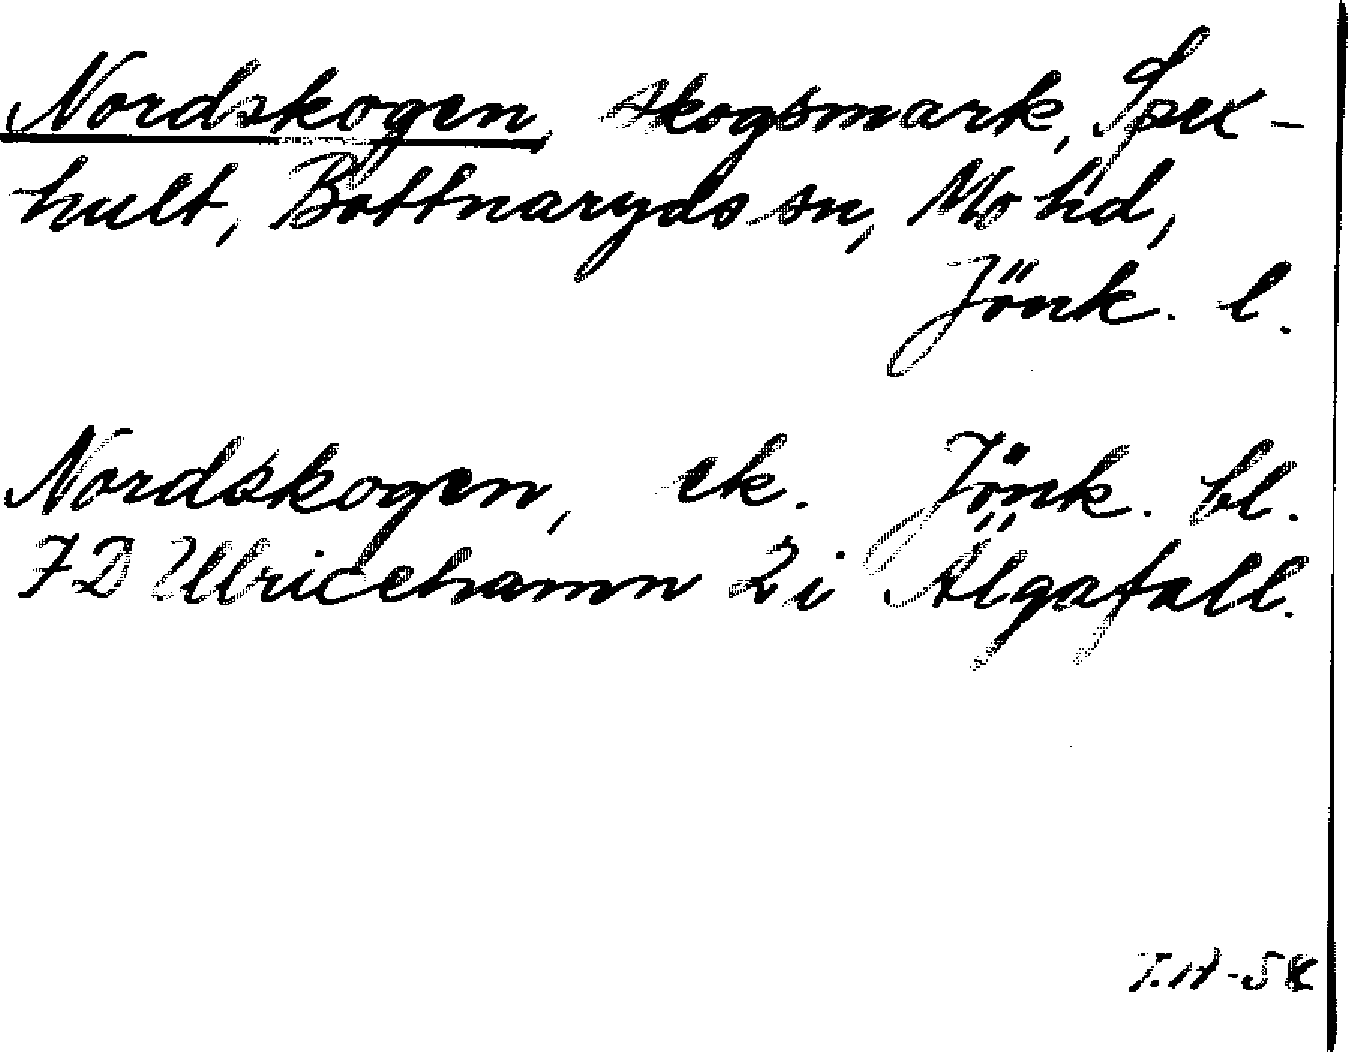 Nordskogen, skogsmark, Spex-
hult, Bottnaryds sn, Mo hd,
Jönk. l.
Nordskogen, ek. Jönk. bl.
7D Ulricehamn 2i Älgafall.
T.H-58